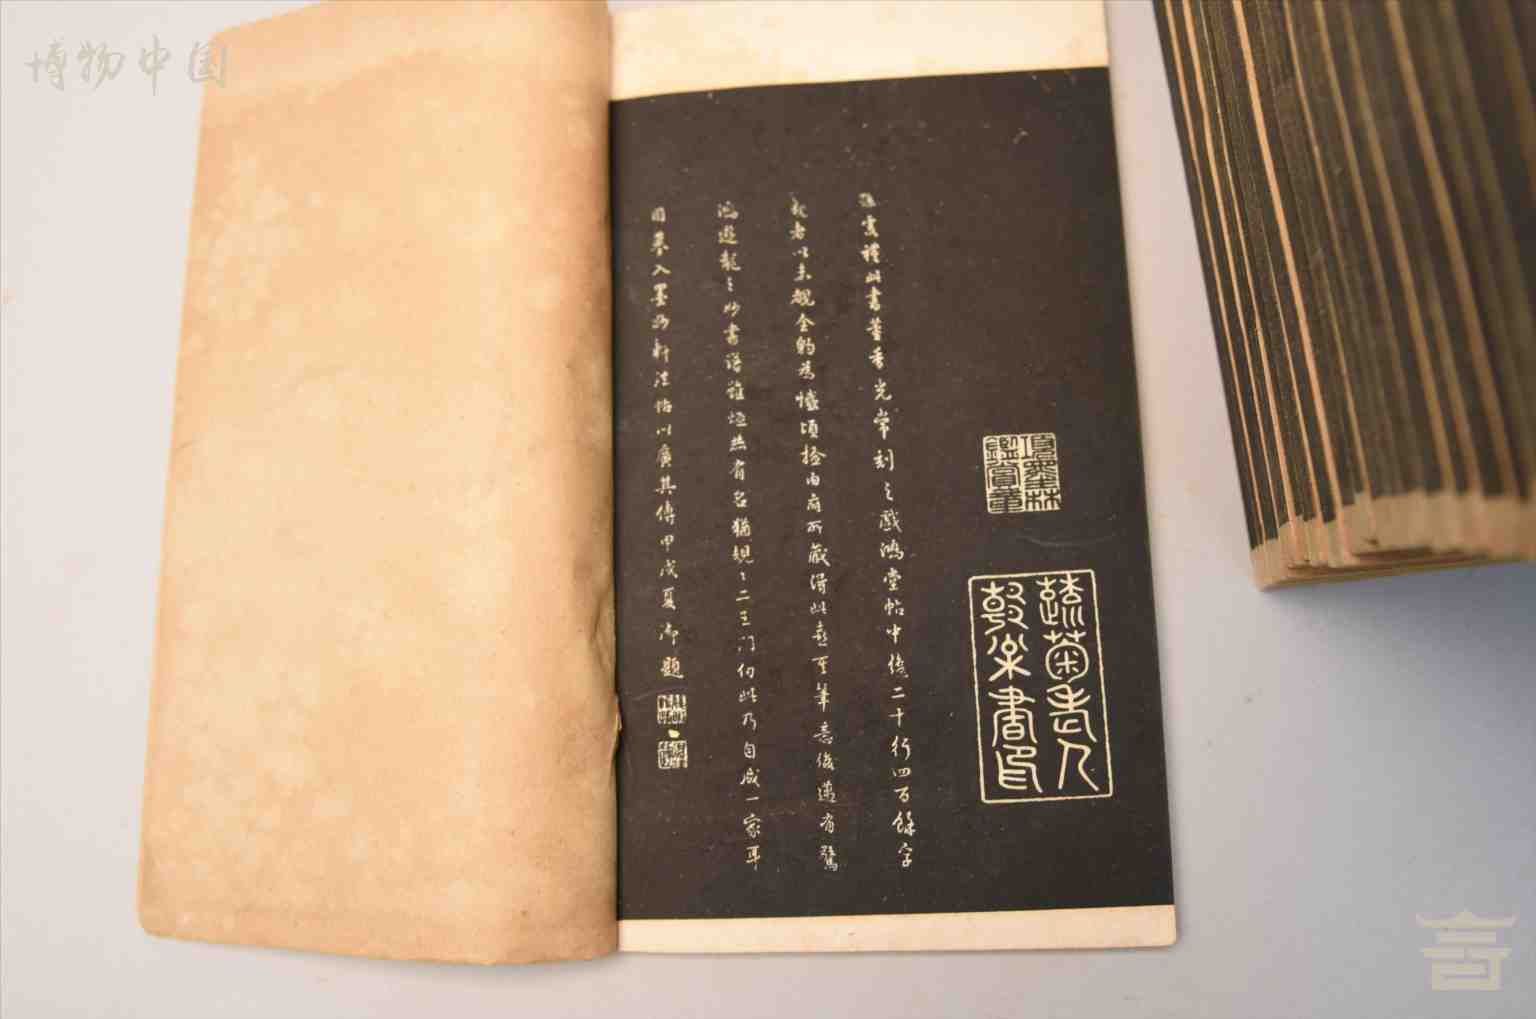 博物中国
孫虔禮此書董香光常刻之戲鴻堂帖中僅二十行四百餘字
觀者以未覩全豹為憾頃撿內府所藏得此卷筆意俊邁有驚
鴻遊龍之妙書譜雖烜赫有名猶規規二王門仞此乃自成一家耳
因摹入墨妙軒法帖以廣其傳甲戌夏御題
項墨林
鑑賞章